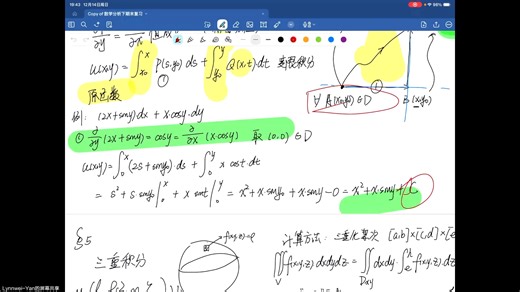 19:43 12月14日周日
Copy of 数学分析下期末复习
u(x,y)=∫_{x₀}^{x} P(s,y₀)ds + ∫_{y₀}^{y} Q(x,t)dt 变限积分
①
原函数
∀A(x,y)∈D B(x,y₀)
例: (2x+siny)dx + x·cosy·dy
① ∂/∂y(2x+siny)=cosy=∂/∂x(x·cosy) 取(0,0)∈D
u(x,y)=∫₀^x(2s+siny₀)ds + ∫₀^y x cost dt
= s²+s·siny₀|₀^x + x sint|₀^y = x²+x·siny₀+x·siny-0 = x²+x·siny+C
§5
三重积分
f(x,y,z)=ρ
计算方法: 三重化累次 [a,b]×[c,d]×[e
∭_V f(x,y,z)dxdydz = ∬_{Dxy} dxdy·∫ f(x,y,z)d
Lynnwei-Yan的屏幕共享